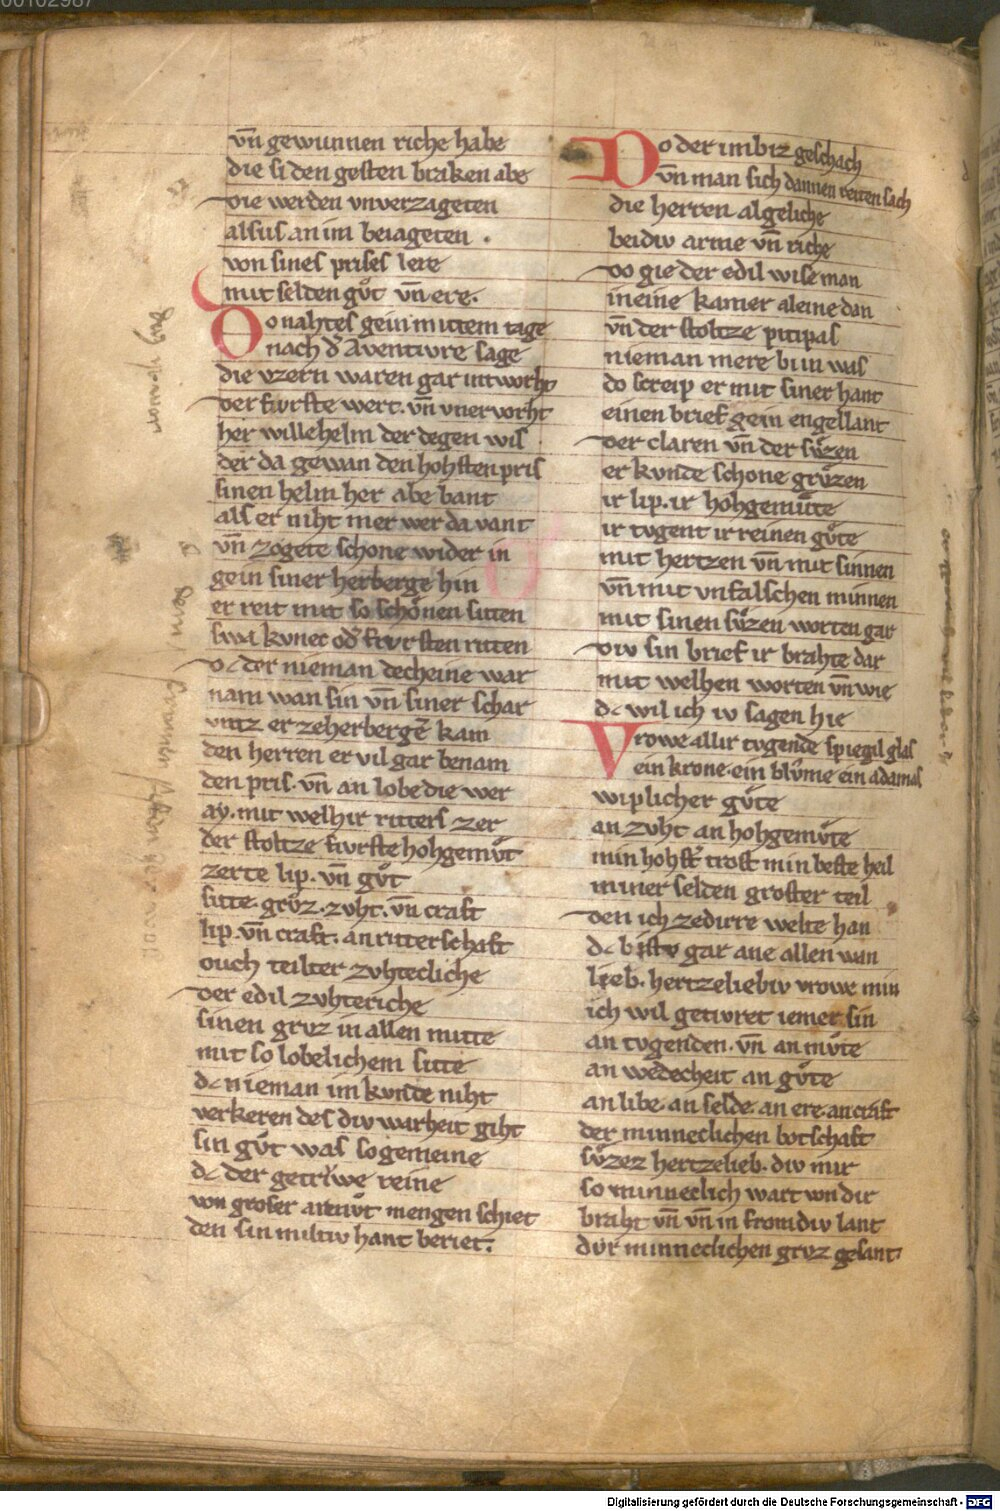 vn̄ gewunnen riche habe
die si den gesten braken abe
die werden vnverzageten
alsus an im beiageten .
von sines prises lere
mit selden gůt vn̄ ere.
Do nahtes gein mittem tage
nach d̄ Aventivre sage
die vzern waren gar intworht
der fvrste wert. vn̄ vnervorht
her willehelm der degen wis
der da gewan den hohsten pris
sinen helm her abe bant
als er niht mer wer da vant
vn̄ zogete schone wider in
gein siner herberge hin
er reit mit so schonen sitten
swa kvnec od̄ fvrsten ritten
dc der nieman decheine war
nam wan sin vn̄ siner schar
vntz er ze herberge kam
den herren er vil gar benam
den pris. vn̄ an lobe die wer
ay. mit welhir ritters zer
der stoltze fvrste hohgemůt
zerte lip. vn̄ gůt
sitte. grůz. zvht. vn̄ craft
lip. vn̄ craft. an ritterschaft
ouch teilter zvhtecliche
der edil zvhteriche
sinen grvz in allen mitte
mit so lobelichem sitte
dc nieman im kvnde niht
verkeren des div warheit giht
sin gůt was so gemeine
dc der getriwe reine
von groser armůt mengen schiet
den sin miltiv hant beriet.
Do der imbiz geschach
vn̄ man sich dannen reiten sach
die herren algeliche
beidiv arme vn̄ riche
do gie der edil wise man
in eine kamer aleine dan
vn̄ der stoltze pitipas
nieman mere bi im was
do screip er mit siner hant
einen brief gein engellant
der claren vn̄ der sůzen
er kvnde schone grůzen
ir lip. ir hohgemůte
ir tvgent ir reinen gůte
mit hertzen vn̄ mit sinnen
vn̄ mit vnfalschen minnen
mit sinen sůzen worten gar
div sin brief ir brahte dar
mit welhen worten vn̄ wie
dc wil ich iv sagen hie
Vrowe allir tvgende spiegil glas
ein krone. ein blůme ein adamas
wiplicher gůte
an zvht an hohgemůte
min hohst̄ trost min beste heil
miner selden groster teil
den ich ze dirre welte han
dc bistv gar ane allen wan
lieb. hertzeliebiv vrowe min
ich wil getivret iemer sin
an tvgenden. vn̄ an můte
an werdecheit an gůte
an libe. an selde. an ere. an craft
der minneclichen botschaft
sůzez hertzelieb. div mir
so minneclich wart von dir
braht vn̄ vn̄ in fromdiv lant
dvr minneclichen grvz gesant
Digitalisierung gefördert durch die Deutsche Forschungsgemeinschaft - DFG